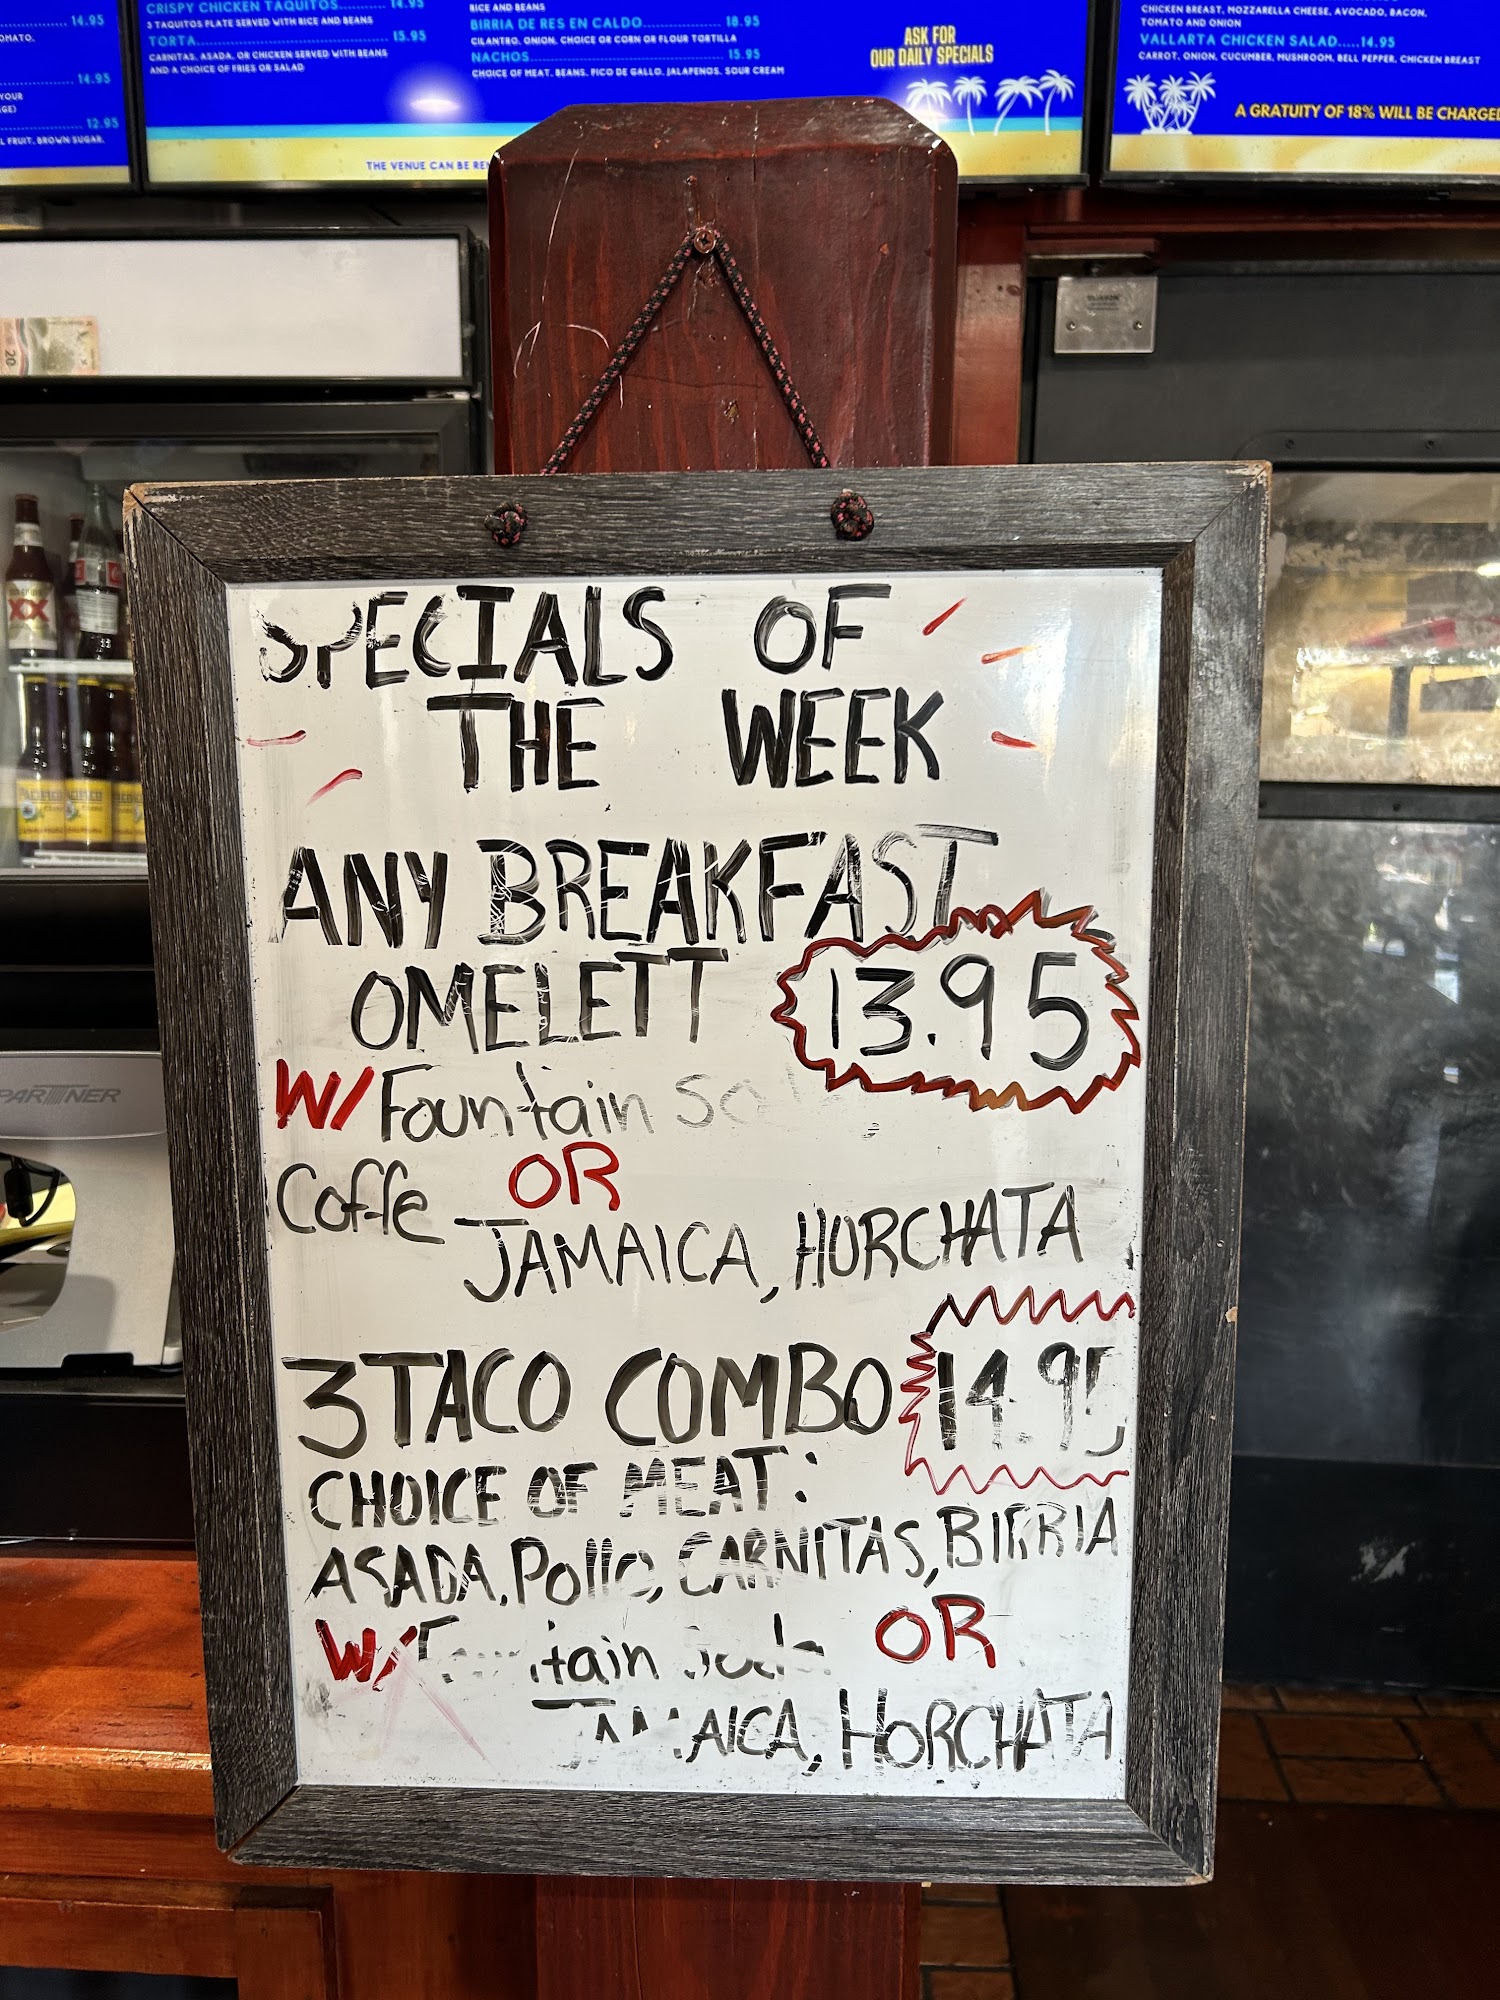 CRISPY CHICKEN TAQUITOS 14.95
3 TAQUITOS PLATE SERVED WITH RICE AND BEANS
TORTA 15.95
CARNITAS, ASADA, OR CHICKEN SERVED WITH BEANS
AND A CHOICE OF FRIES OR SALAD
14.95
14.95
12.95
FRUIT, BROWN SUGAR,
RICE AND BEANS
BIRRIA DE RES EN CALDO 18.95
CILANTRO, ONION, CHOICE OR CORN OR FLOUR TORTILLA
NACHOS 15.95
CHOICE OF MEAT, BEANS, PICO DE GALLO, JALAPENOS, SOUR CREAM
ASK FOR
OUR DAILY SPECIALS
THE VENUE CAN BE
CHICKEN BREAST, MOZZARELLA CHEESE, AVOCADO, BACON,
TOMATO AND ONION
VALLARTA CHICKEN SALAD.....14.95
CARROT, ONION, CUCUMBER, MUSHROOM, BELL PEPPER, CHICKEN BREAST
A GRATUITY OF 18% WILL BE CHARGED
20
XX
PARTNER
SPECIALS OF
THE WEEK
ANY BREAKFAST
OMELETT 13.95
W/ Fountain
Coffe OR
JAMAICA, HORCHATA
3 TACO COMBO 14.95
CHOICE OF MEAT:
ASADA, Pollo, CARNITAS, BIRRIA
W/ Fountain Soda OR
JAMAICA, HORCHATA